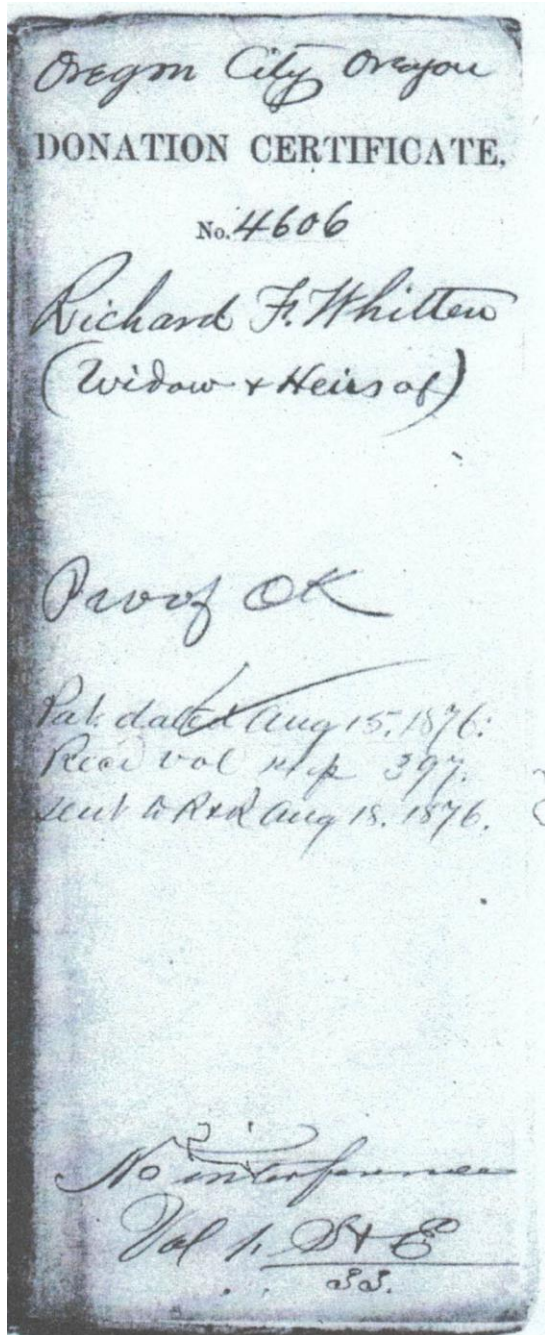 Oregon City Oregon
DONATION CERTIFICATE,
No. 4606
Richard F. Whitten
(Widow & Heirs of)
Proof OK
Pat. dated Aug 15. 1876.
Recd vol p 397.
Sent to R&R Aug 18. 1876.
No interference
Vol 1. S & E
33.